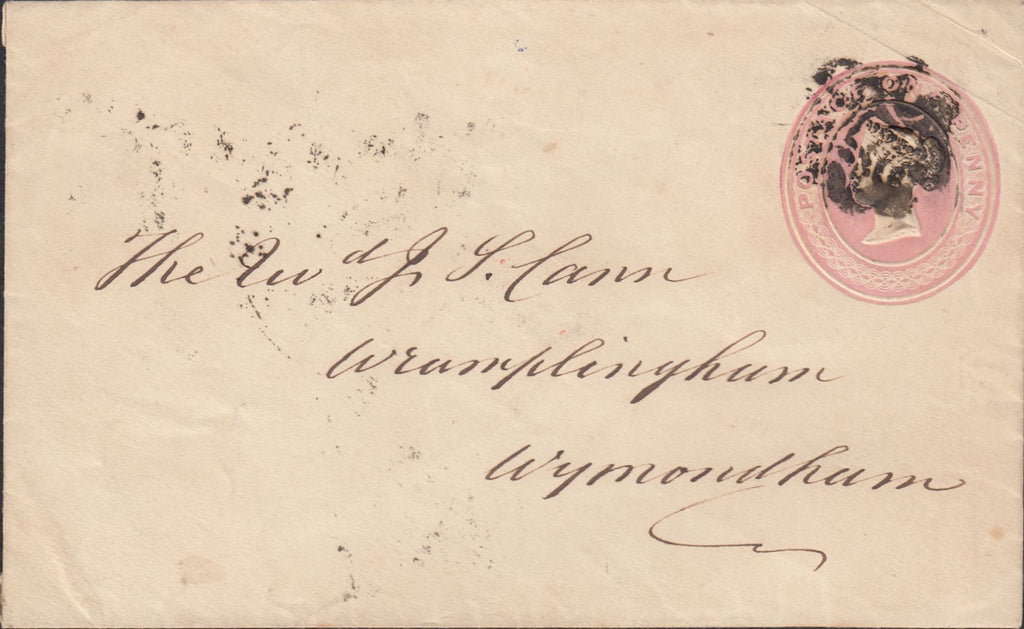 POSTAGE ONE PENNY
The Revd J S. Cann
Wramplingham
Wymondham